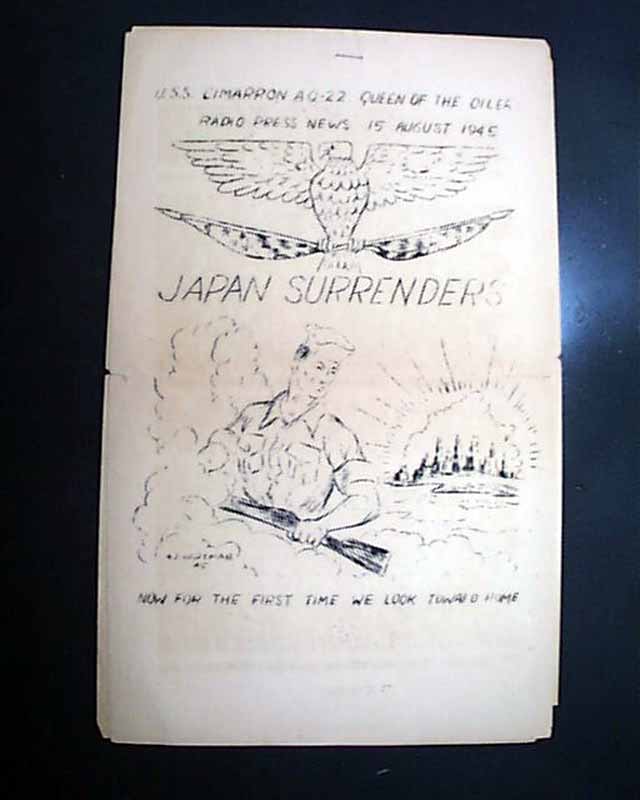 U.S.S. CIMARRON AO-22 QUEEN OF THE OILER
RADIO PRESS NEWS 15 AUGUST 1945
JAPAN SURRENDERS
45
NOW FOR THE FIRST TIME WE LOOK TOWARD HOME